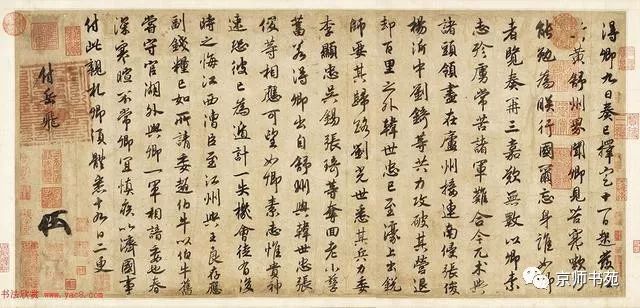 得卿九日奏已擇定十一日起發往
蘄黃舒州界聞卿見苦寒嗽乃
能勉為朕行國爾忘身誰如卿
者覽奏再三嘉歎無斁以卿素
志殄虜常苦諸軍難合今兀朮與
諸頭領盡在廬州接連南侵張俊
楊沂中劉錡等共力攻破其營退
却百里之外韓世忠已至濠上出銳
師要其歸路劉光世悉其兵力委
李顯忠吳錫張琦等奪回老小孳
畜若得卿出自舒州與韓世忠張
俊等相應可望如卿素志惟貴神
速恐彼已為遁計一失機會徒有後
時之悔江西漕臣至江州與王良存應
副錢糧已如所請委趙伯牛以伯牛舊
嘗守官湖外與卿一軍相諳委也春
深寒暄不常卿宜慎疾以濟國事
付此親札卿須體悉十九日二更
付岳飛
书法欣赏 www.yac8.com
京师书苑